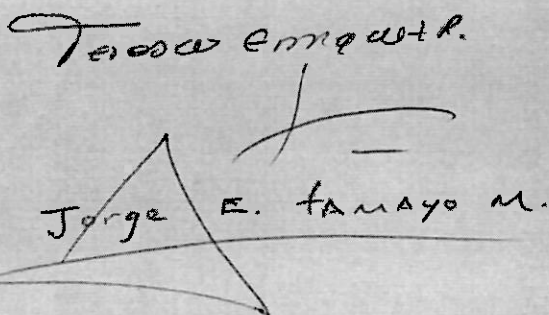 Teresa Enriquez R.
Jorge E. TAMAYO M.